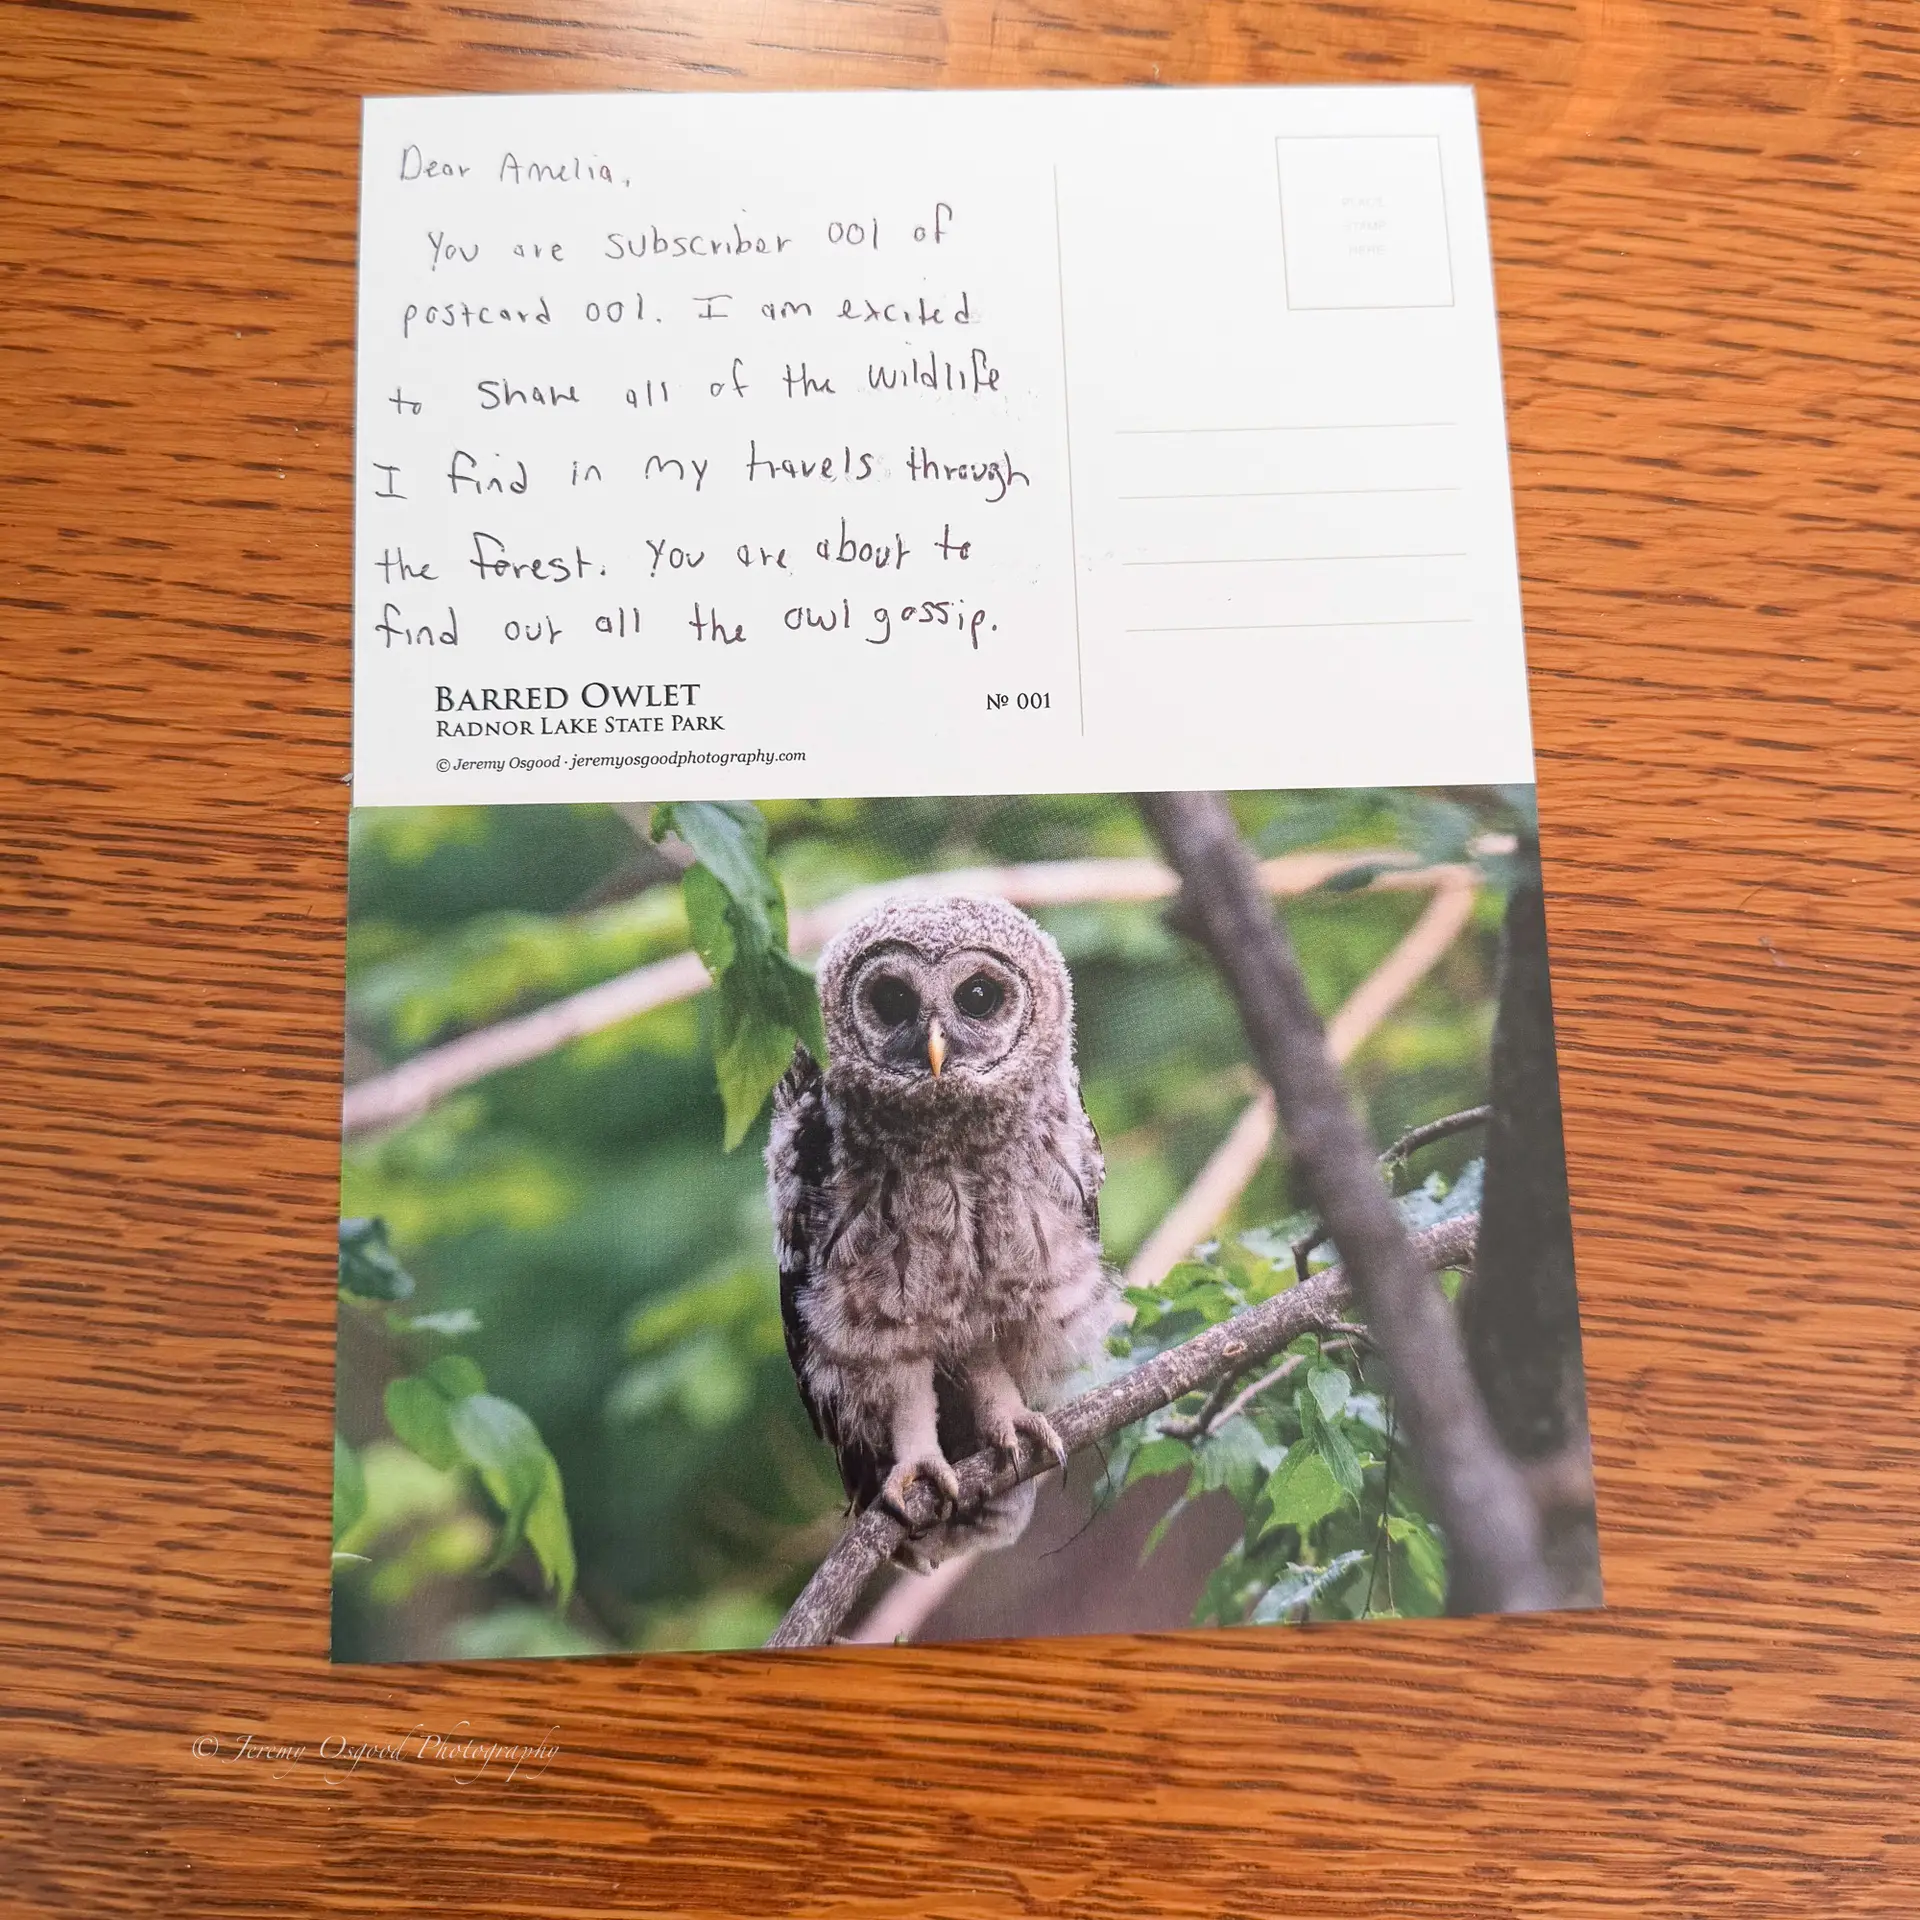 Dear Amelia,
You are subscriber 001 of
postcard 001. I am excited
to share all of the wildlife
I find in my travels through
the forest. You are about to
find out all the owl gossip.
BARRED OWLET
RADNOR LAKE STATE PARK
Nº 001
© Jeremy Osgood · jeremyosgoodphotography.com
PLACE
STAMP
HERE
© Jeremy Osgood Photography